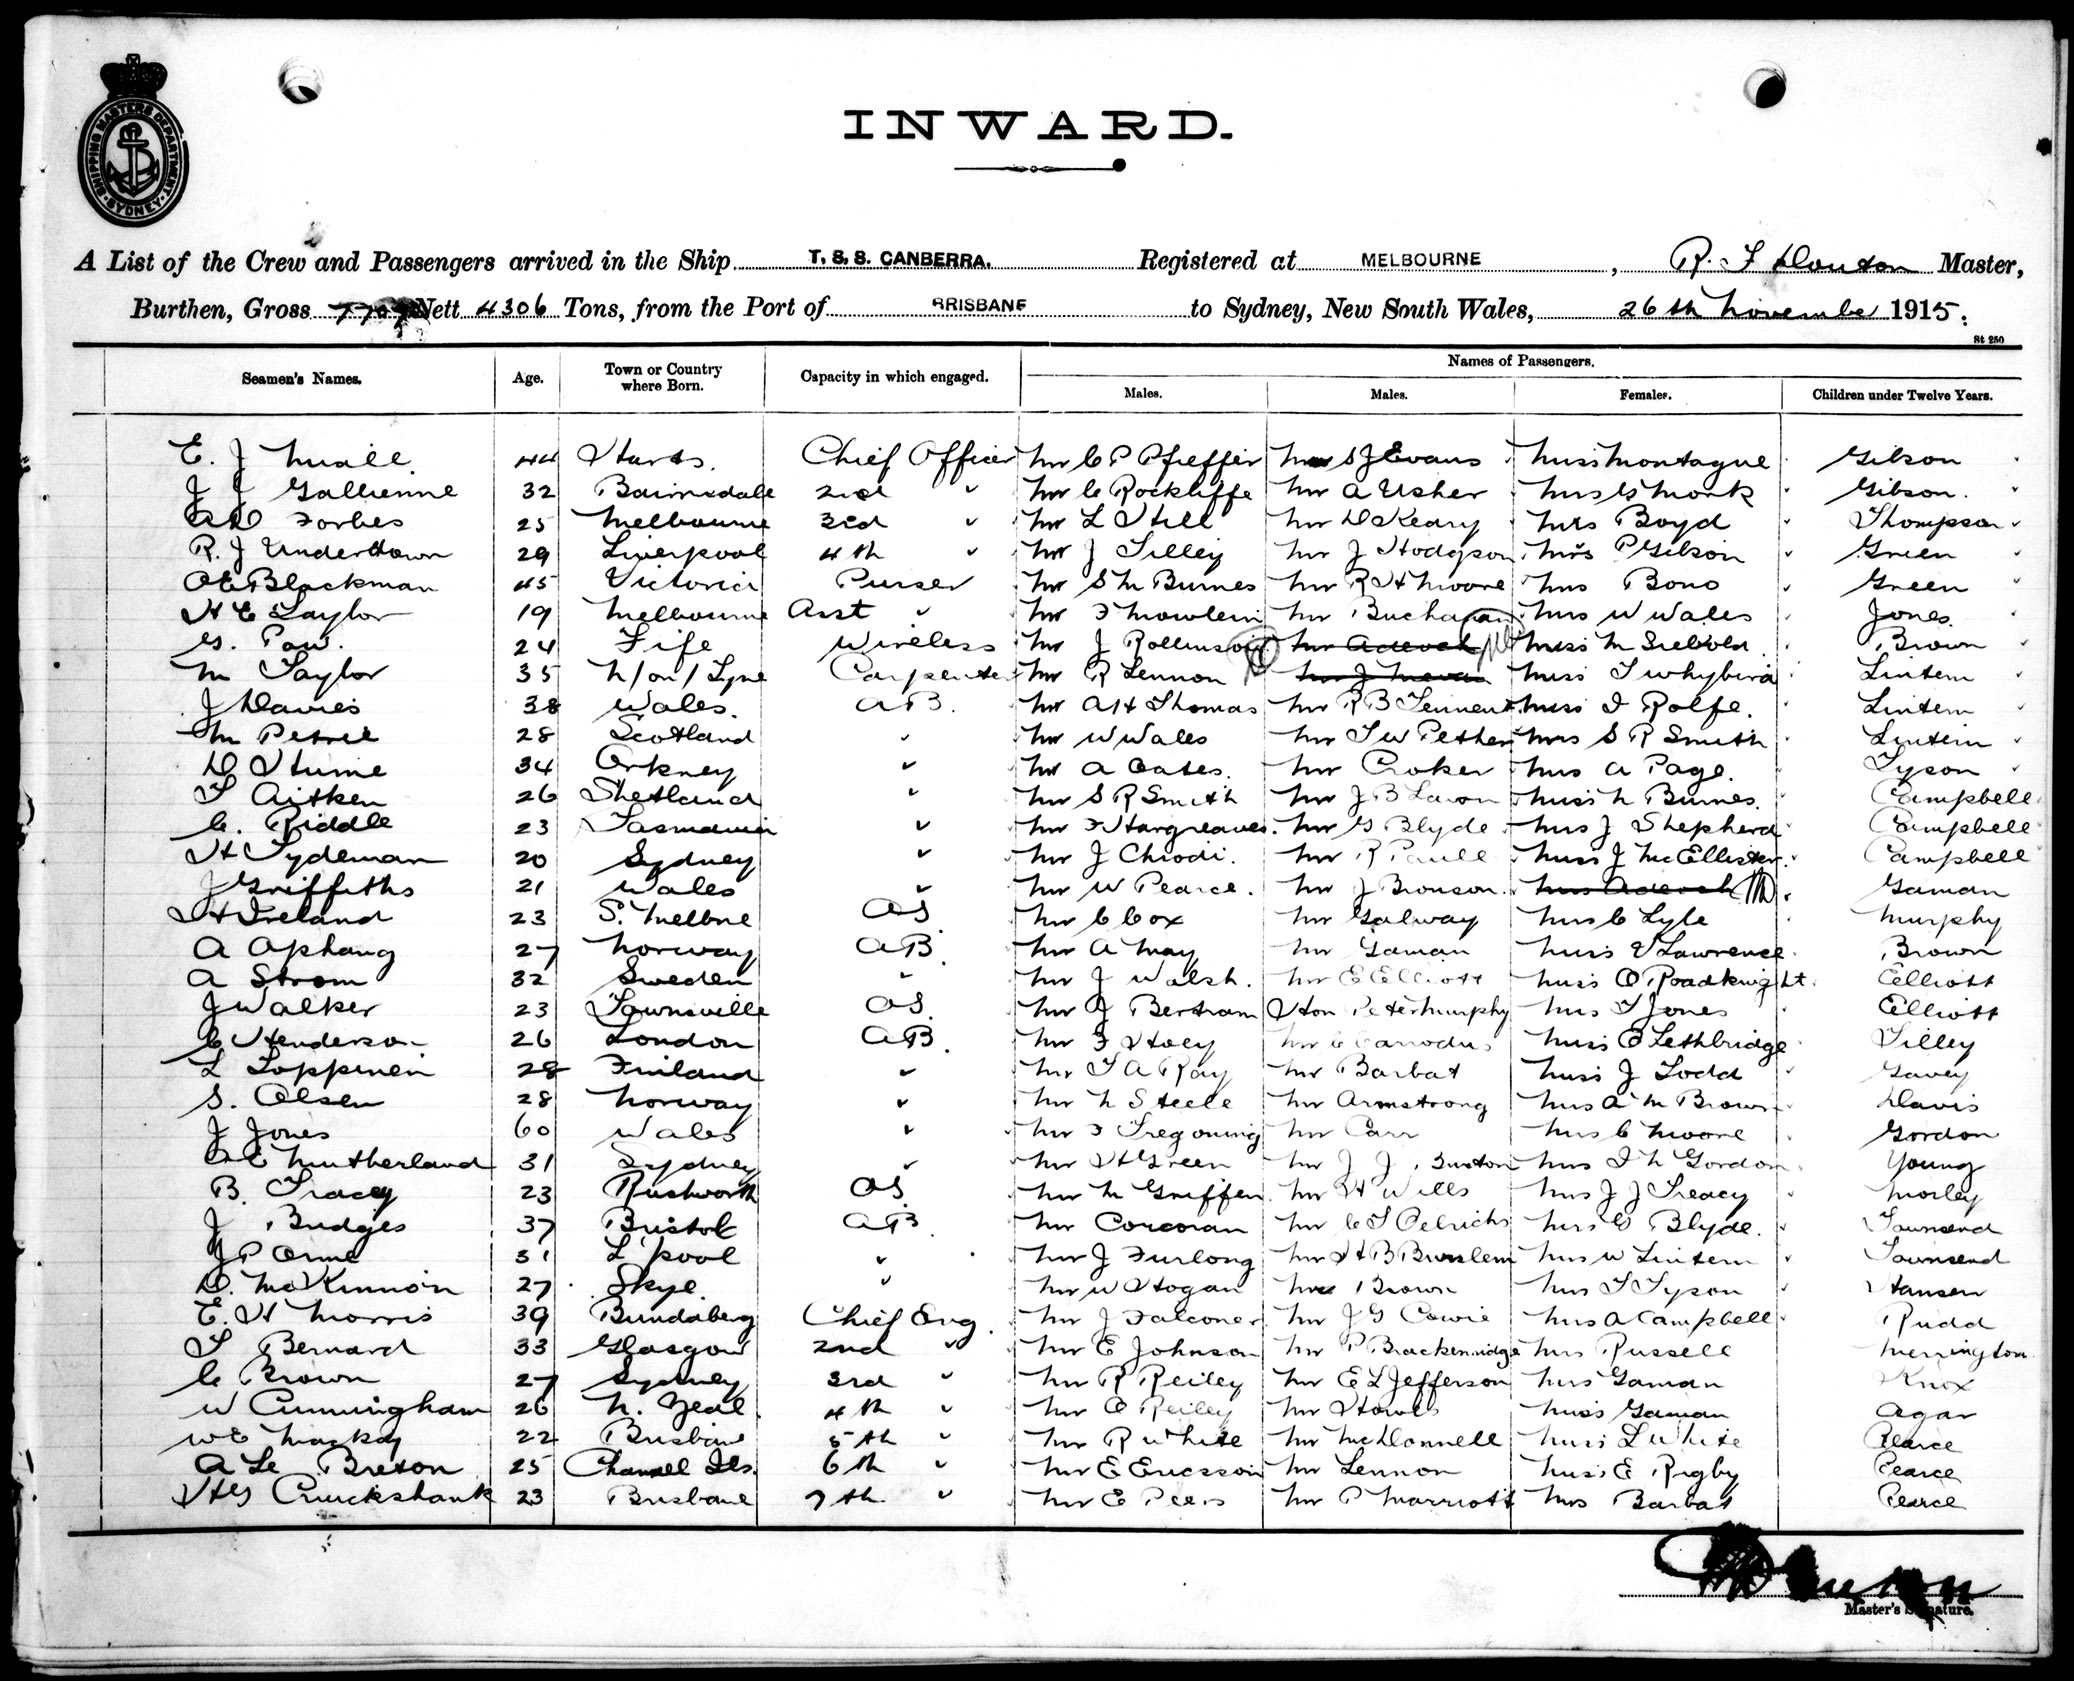 SHIPPING MASTERS DEPARTMENT
SYDNEY
INWARD.
A List of the Crew and Passengers arrived in the Ship T. S. S. CANBERRA. Registered at MELBOURNE, R. F Master,
Burthen, Gross Nett 4306 Tons, from the Port of BRISBANE to Sydney, New South Wales, 26th November 1915.
St 250
Seamen's Names. Age. Town or Country where Born. Capacity in which engaged. Names of Passengers.
Males. Males. Females. Children under Twelve Years.
E. J Niall 44 Harts. Chief Officer Mr C P Pfeffer Mr S J Evans Miss Montague Gibson
J J Gallienne 32 Bairnsdale 2nd " Mr C Rockliffe Mr A Usher Mrs G Monk Gibson.
A D Forbes 25 Melbourne 3rd " Mr L Hill Mr D Keary Mrs Boyd Thompson
R. J Underdown 29 Liverpool 4th " Mr J Tilley Mr J Hodgson Mrs P Gibson Green
A E Blackman 45 Victoria Purser Mr S M Burnes Mr R H Moore Mrs Bono Green
H E Taylor 19 Melbourne Asst " Mr F Mowlem Mr Buchanan Mrs W Wales Jones.
G. Paw. 24 Fife Wireless Mr J Rollinson Mr Miss M Siebold Brown
M Taylor 35 N/on/Tyne Carpenter Mr R Lennon Mr J Miss T Whybird Lintern
J Davies 38 Wales. AB. Mr A H Thomas Mr R B Tennent Miss I Rolfe. Lintern
M Petrie 28 Scotland " Mr W Wales Mr T W Pether Mrs S R Smith Lintern
D Hume 34 Orkney " Mr A Oates. Mr Croker Mrs A Page. Tyson
T Aitken 26 Shetland " Mr S R Smith Mr J B Lawn Miss N Burnes. Campbell
C. Riddle 23 Tasmania " Mr F Hargreaves. Mr G Blyde Mrs J Shepherd Campbell
H Tydeman 20 Sydney " Mr J Chiodi. Mr R Paull Miss J McEllister. Campbell
J Griffiths 21 Wales " Mr W Pearce. Mr J Bronson. Mrs Gaman
H Ireland 23 S. Melbne OS Mr C Cox Mr Galway Mrs C Lyle Murphy
A Ophang 27 Norway AB. Mr A May Mr Gaman Miss V Lawrence Brown
A Strom 32 Sweden " Mr J Walsh. Mr E Elliott Miss O Roadknight. Elliott
J Walker 23 Townsville OS. Mr J Bertram Hon Peter Murphy Mrs T Jones Elliott
C Henderson 26 London AB. Mr F Hoey Mr C Carrodus Miss E Lethbridge Tilley
L Loppenen 28 Finland " Mr T A Ray Mr Barbat Miss J Todd Gavey
S. Olsen 28 Norway " Mr N Steele Mr Armstrong Mrs A M Brown Davis
J Jones 60 Wales " Mr F Tregoning Mr Carr Mrs C Moore Gordon
A E Mutherland 31 Sydney " Mr H Green Mr J J Buxton Mrs I N Gordon Young
B. Tracey 23 Rushworth OS Mr M Griffen. Mr H Wills Mrs J J Treacy Morley
J Budges 37 Bristol AB. Mr Corcoran Mr C T Oelrichs Mrs G Blyde. Townsend
J P Orme 31 L'pool " Mr J Furlong Mr H B Burslem Mrs W Lintern Townsend
D. McKinnon 27 Skye. " Mr W Hogan Mr Brown Mrs T Tyson Hansen
E. H Morris 39 Bundaberg Chief Eng. Mr J Falconer Mr J G Cowie Mrs A Campbell Rudd
T Bernard 33 Glasgow 2nd " Mr E Johnson Mr P Brackenridge Mrs Russell Merrington
C Brown 27 Sydney 3rd " Mr R Reiley Mr E L Jefferson Mrs Gaman Knox
W Cunningham 26 N. Zeal. 4th " Mr O Reiley Mr Howes Miss Gaman Agar
W E Mackay 22 Brisbane 5th " Mr R White Mr McDonnell Miss L White Pearce
A Le Breton 25 Channel Ils. 6th " Mr E Ericsson Mr Lennon Miss E Rigby Pearce
H G Cruickshank 23 Brisbane 7th " Mr E Peers Mr P Marriott Mrs Barbat Pearce
Master's Signature.